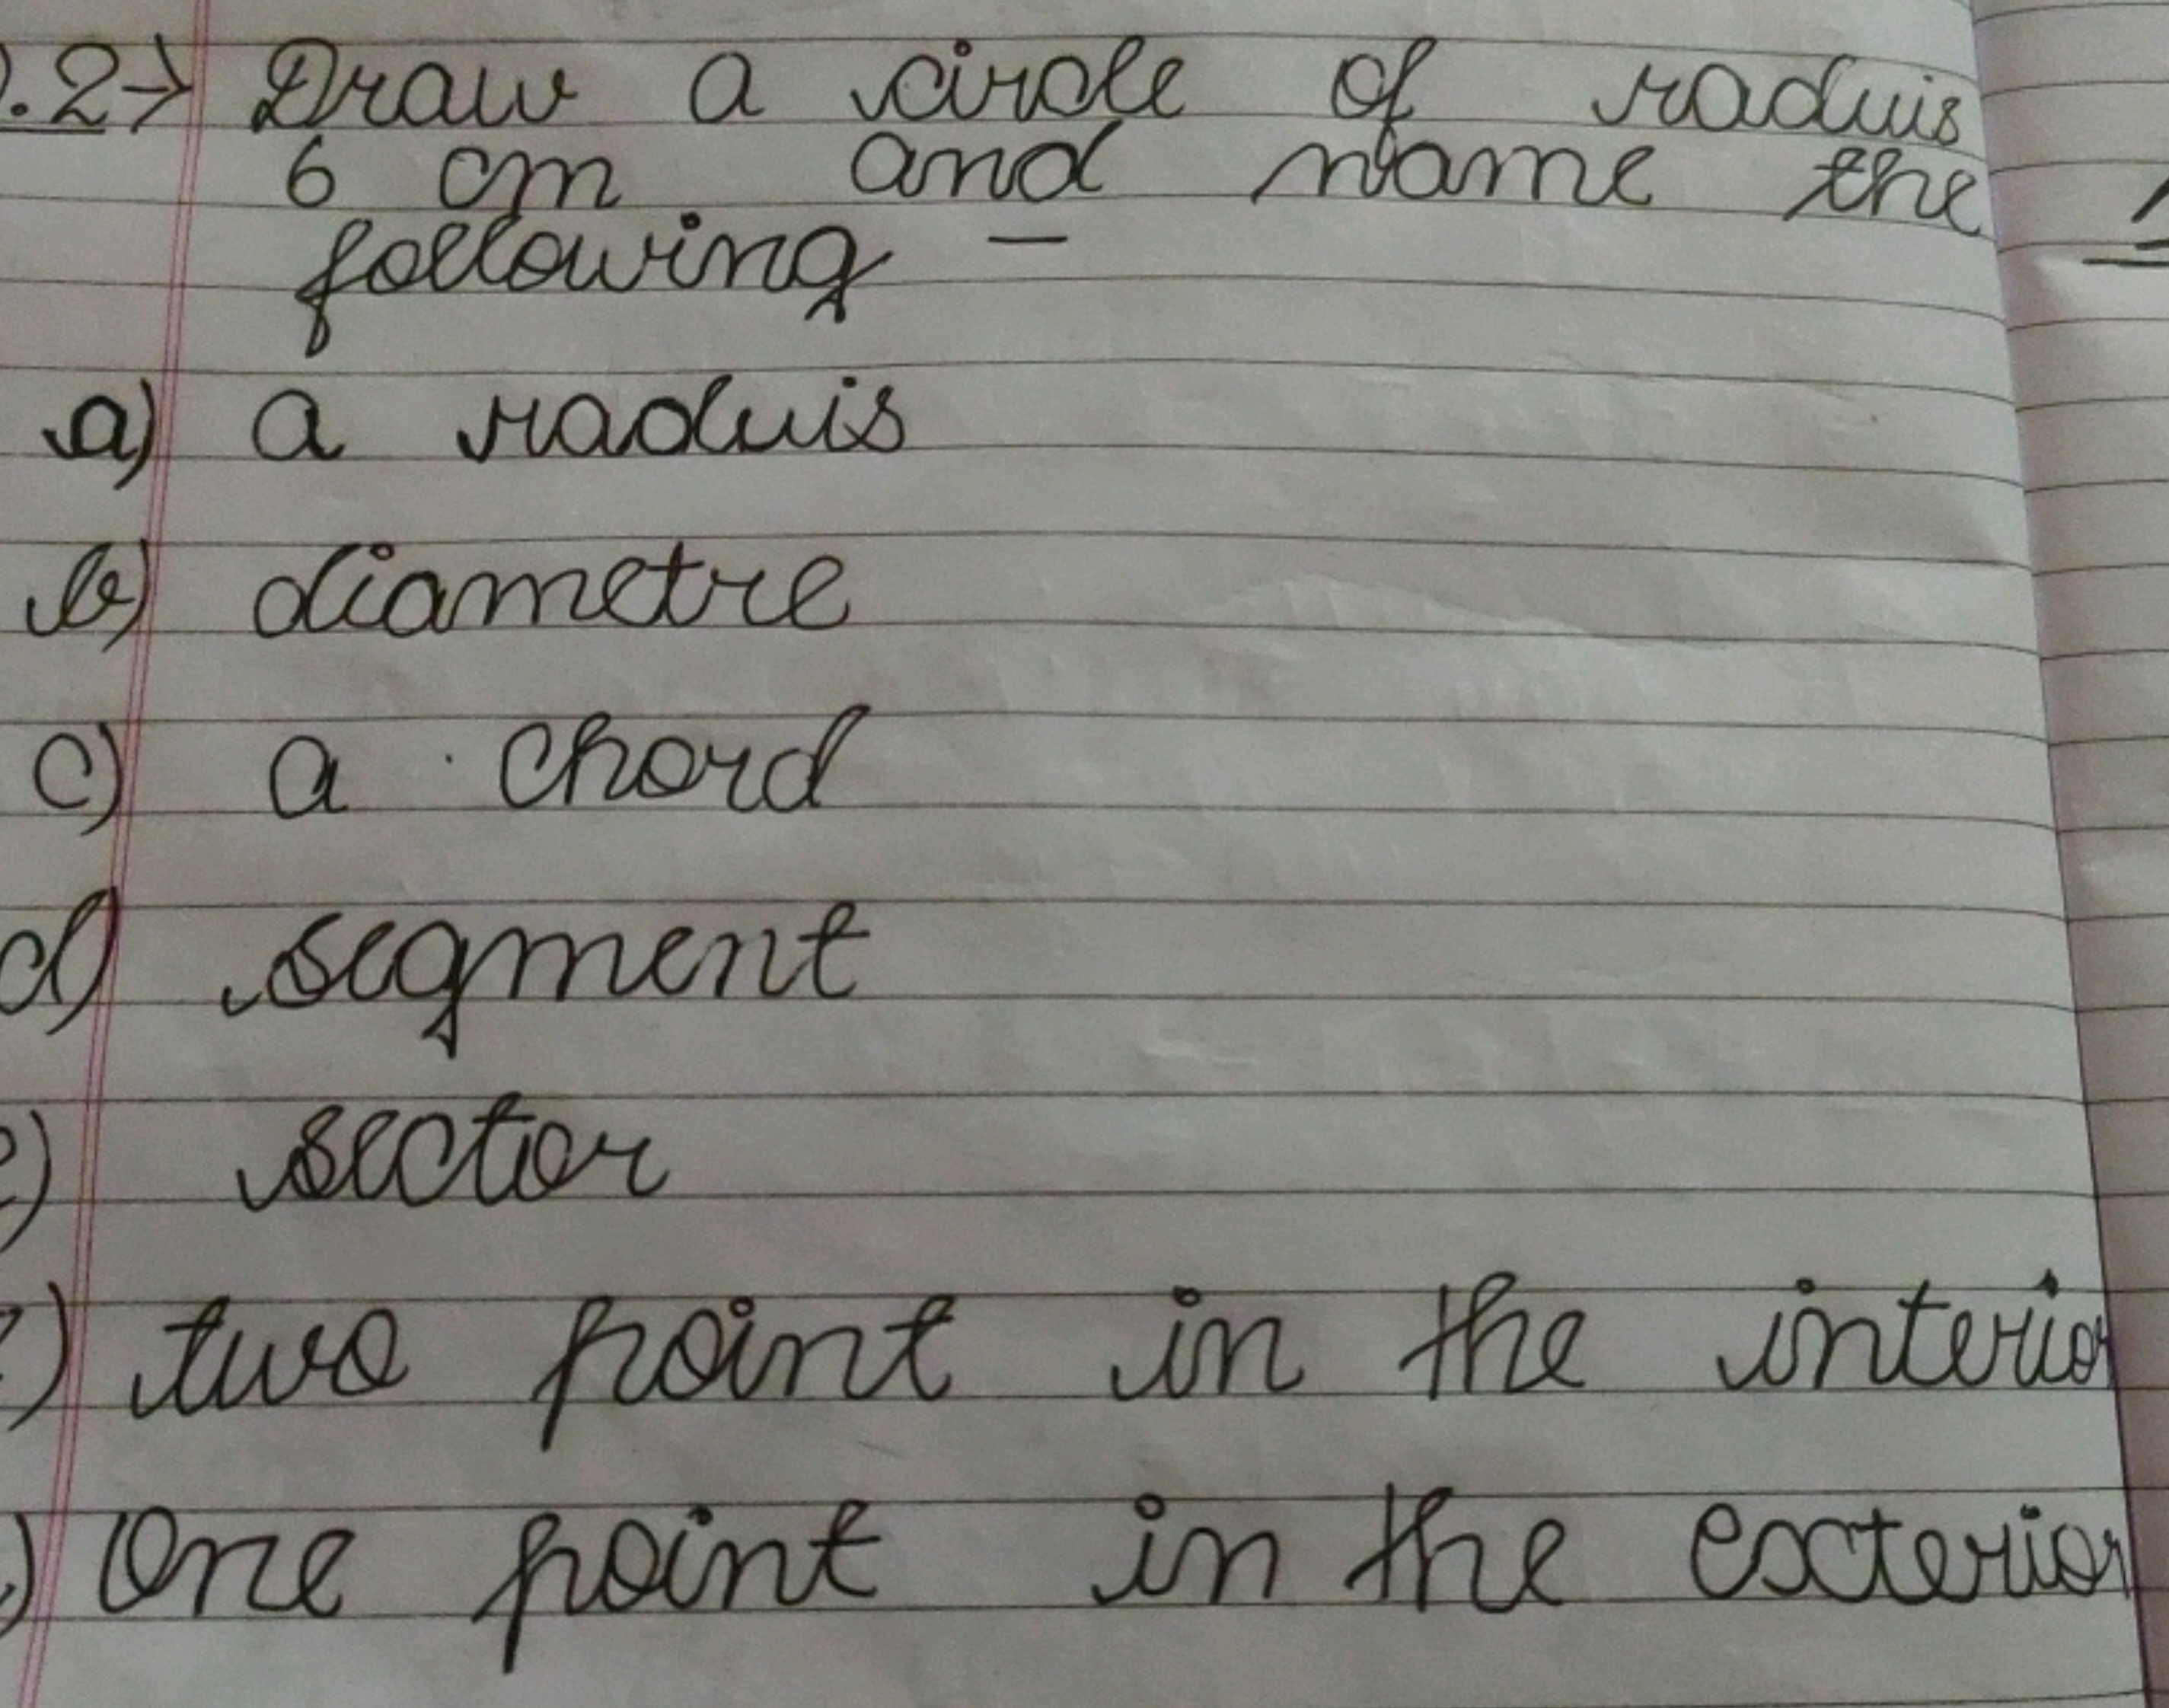 .2→ Draw a circle of raduis
6 cm and name the
following –
a) a raduis
b) diametre
c) a chord
d) segment
e) sector
) two point in the interior
) One point in the exterior